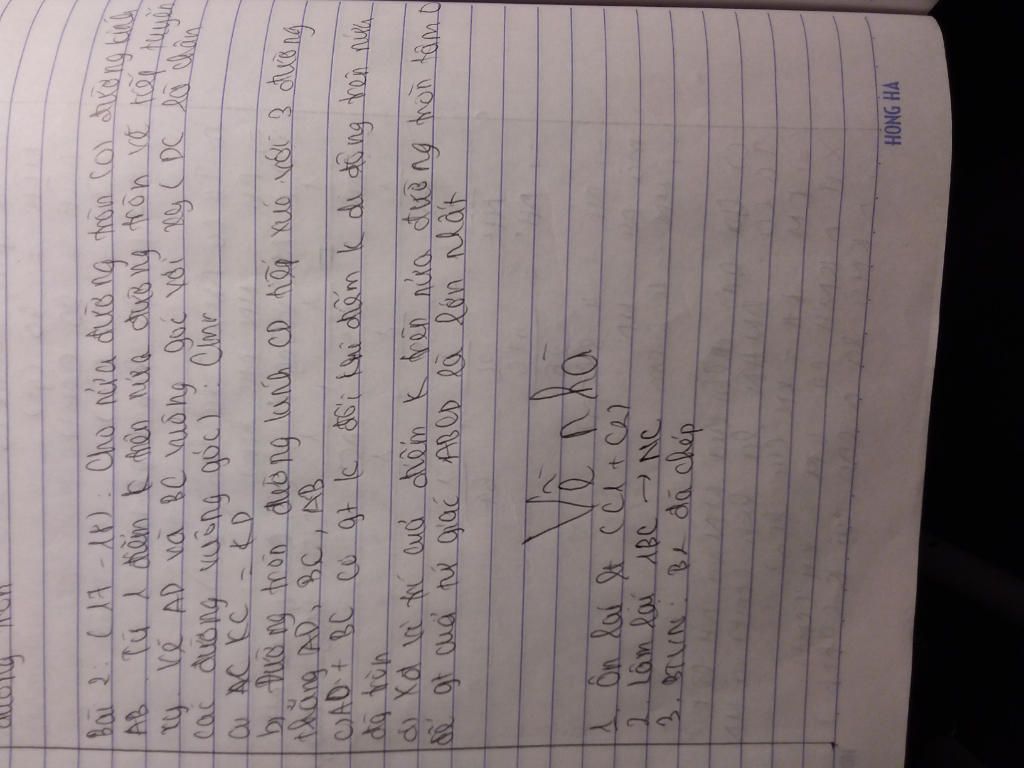 Bài 2: (17-18): Cho nửa đường tròn (O) đường kính
AB Từ 1 điểm K trên nửa đường tròn vẽ tiếp tuyến
xy. Vẽ AD và BC vuông góc với xy ( DC là chân
các đường vuông góc): Cmr
a) KC = KD
b) Đường tròn đường kính CD tiếp xúc với 3 đường
thẳng AD, BC, AB
c) AD + BC có gt k đổi khi điểm K di động trên nửa
đg tròn
d) Xđ vị trí của điểm K trên nửa đường tròn tâm O
để gt của tứ giác ABCD là lớn nhất
Về nhà
1. Ôn lại lt (C1 + C2)
2. Làm lại 1BC → NC
3. BTVN: B2 đã chép
HỒNG HÀ